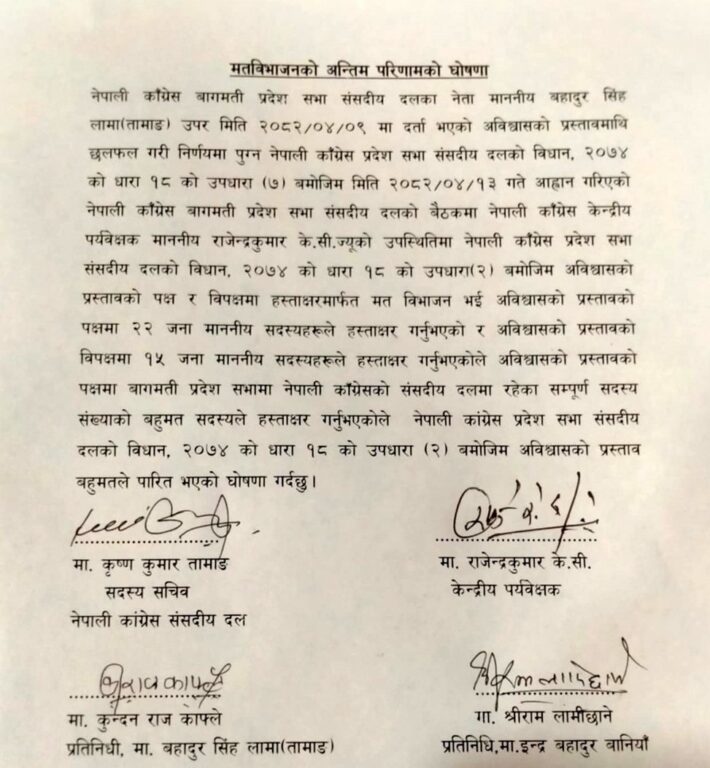 मतविभाजनको अन्तिम परिणामको घोषणा
नेपाली काँग्रेस बागमती प्रदेश सभा संसदीय दलका नेता माननीय बहादुर सिंह
लामा(तामाङ) उपर मिति २०८२/०४/०९ मा दर्ता भएको अविश्वासको प्रस्तावमाथि
छलफल गरी निर्णयमा पुग्न नेपाली काँग्रेस प्रदेश सभा संसदीय दलको विधान, २०७४
को धारा १८ को उपधारा (७) बमोजिम मिति २०८२/०४/१३ गते आह्वान गरिएको
नेपाली काँग्रेस बागमती प्रदेश सभा संसदीय दलको बैठकमा नेपाली काँग्रेस केन्द्रीय
पर्यवेक्षक माननीय राजेन्द्रकुमार के.सी.ज्यूको उपस्थितिमा नेपाली काँग्रेस प्रदेश सभा
संसदीय दलको विधान, २०७४ को धारा १८ को उपधारा(२) बमोजिम अविश्वासको
प्रस्तावको पक्ष र विपक्षमा हस्ताक्षरमार्फत मत विभाजन भई अविश्वासको प्रस्तावको
पक्षमा २२ जना माननीय सदस्यहरूले हस्ताक्षर गर्नुभएको र अविश्वासको प्रस्तावको
विपक्षमा १५ जना माननीय सदस्यहरूले हस्ताक्षर गर्नुभएकोले अविश्वासको प्रस्तावको
पक्षमा बागमती प्रदेश सभामा नेपाली काँग्रेसको संसदीय दलमा रहेका सम्पूर्ण सदस्य
संख्याको बहुमत सदस्यले हस्ताक्षर गर्नुभएकोले नेपाली कांग्रेस प्रदेश सभा संसदीय
दलको विधान, २०७४ को धारा १८ को उपधारा (२) बमोजिम अविश्वासको प्रस्ताव
बहुमतले पारित भएको घोषणा गर्दछु।
मा. कृष्ण कुमार तामाङ
सदस्य सचिव
नेपाली कांग्रेस संसदीय दल
मा. राजेन्द्रकुमार के.सी.
केन्द्रीय पर्यवेक्षक
मा. कुन्दन राज काफ्ले
प्रतिनिधी, मा. बहादुर सिंह लामा(तामाङ)
गा. श्रीराम लामीछाने
प्रतिनिधि,मा.इन्द्र बहादुर बानियाँ